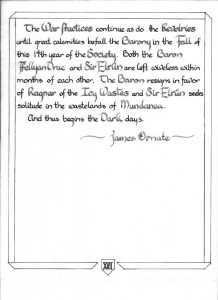 The War Practices continue as do the Revelries
until great calamities befall the Barony in the Fall of
this 19th year of the Society. Both the Baron
Fellyan Drac and Sir Elrün are left loveless within
months of each other. The Baron resigns in favor
of Ragnar of the Icy Wastes and Sir Elrün seeks
solitude in the wastelands of Mundanea.
And thus begins the Dark days.
James Ornate
XVI